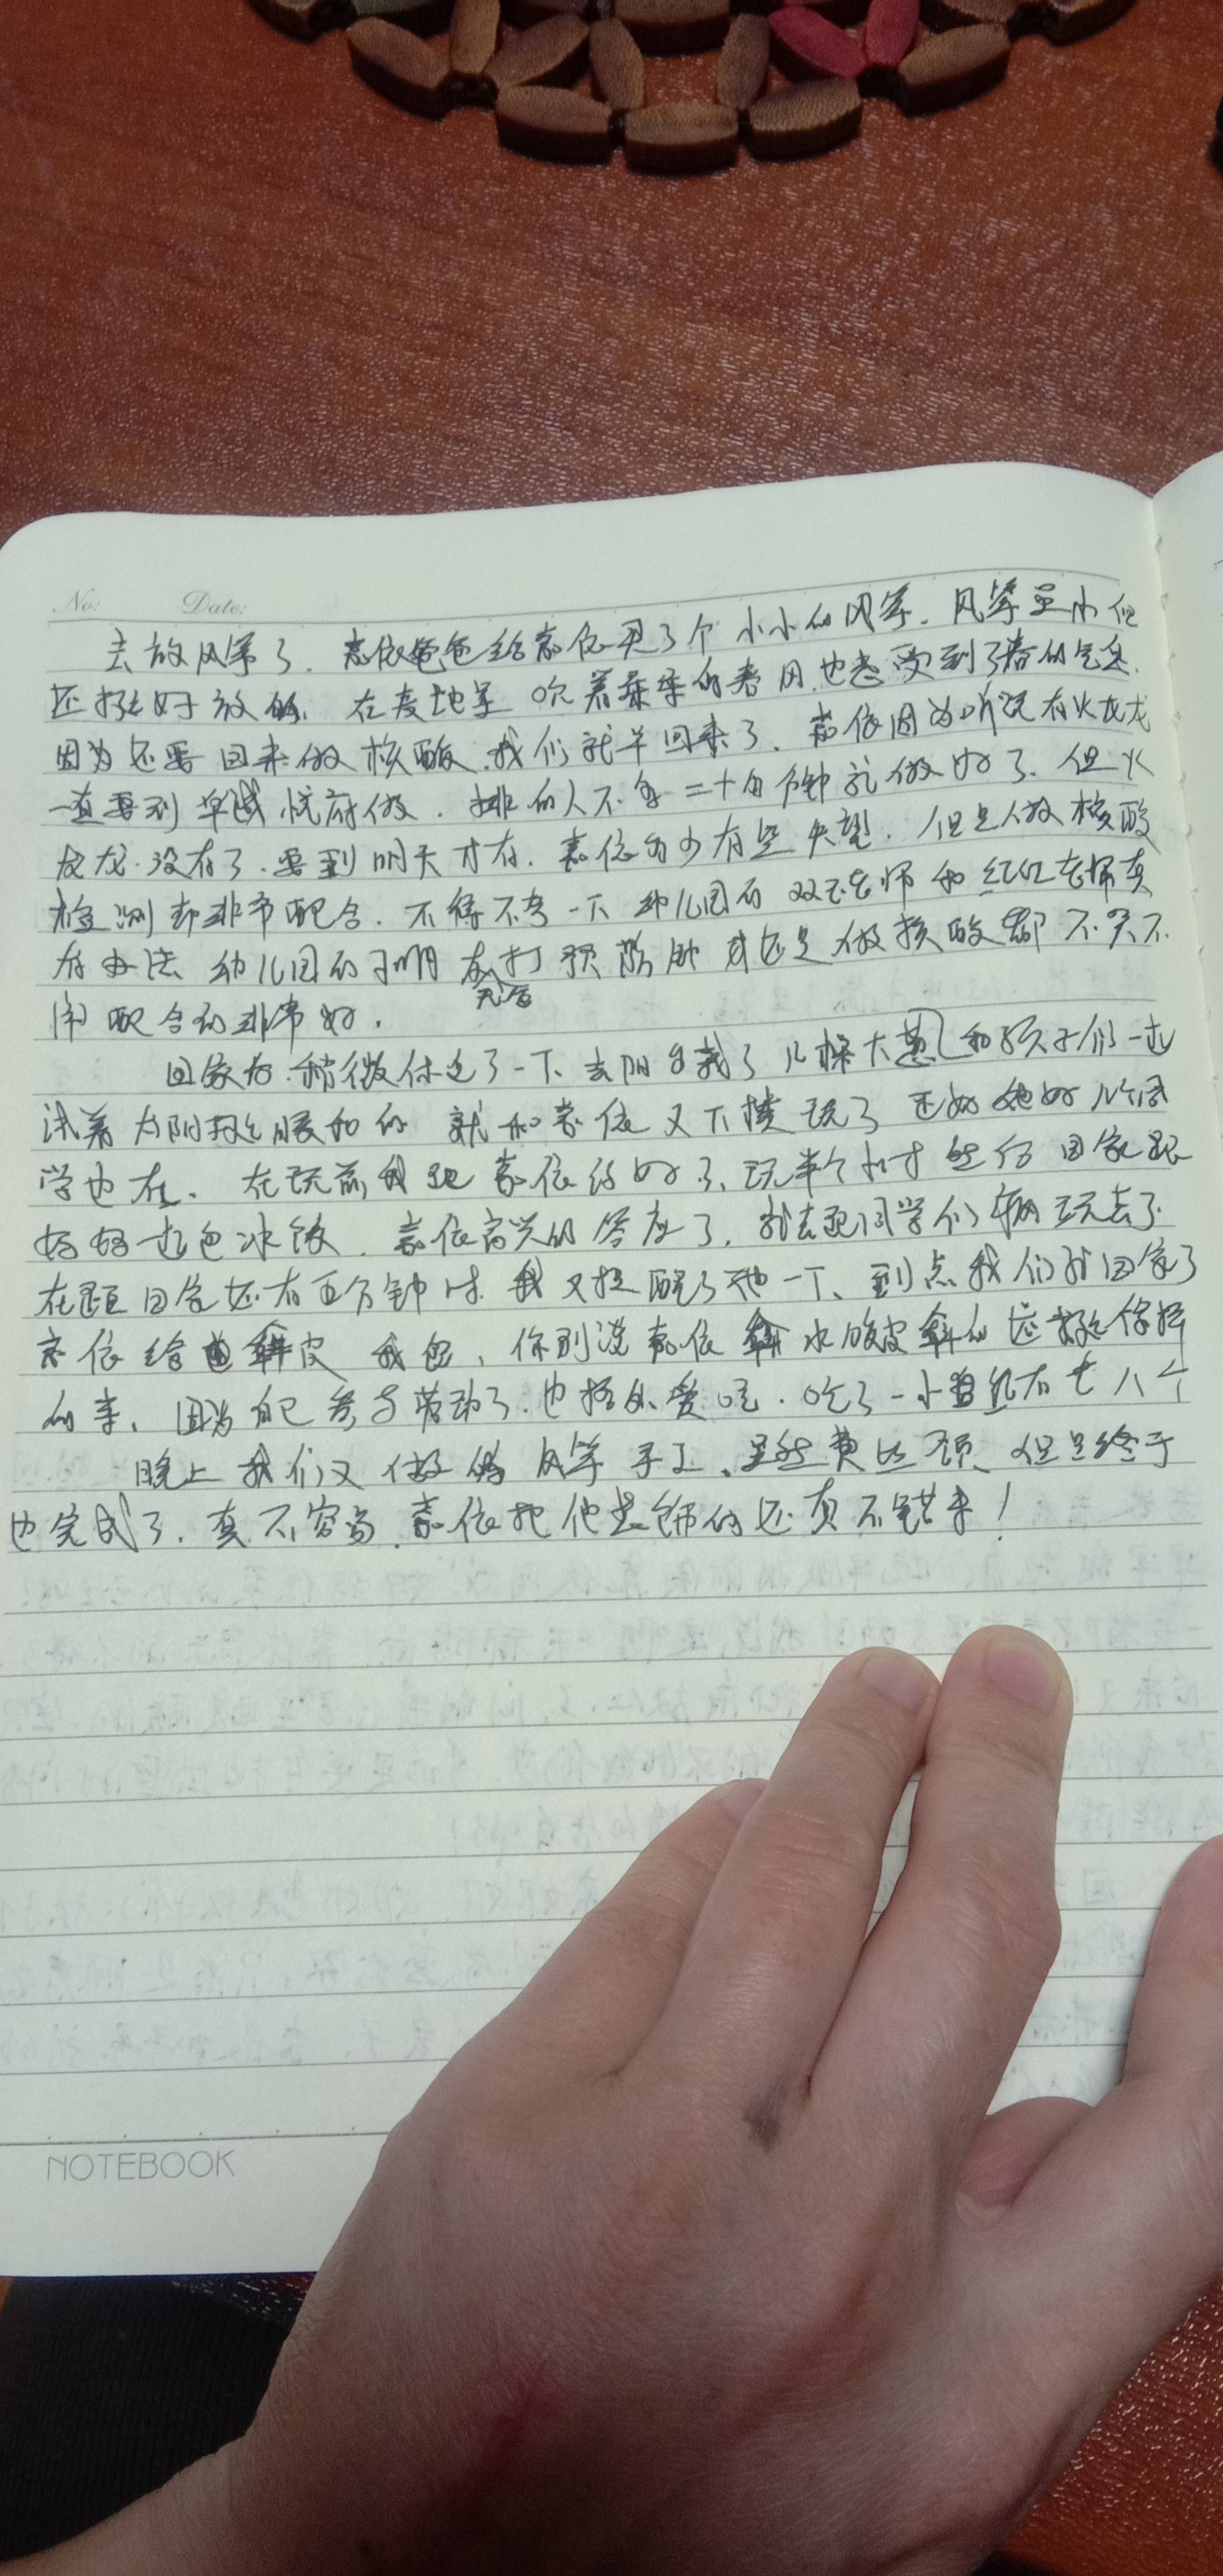 No: Date:
去放风筝了。嘉依爸爸给嘉依买了个小小的风筝。风筝虽小但
还挺好放的。在麦地里吹着柔柔的春风,也感受到了春的气息。
因为还要回来做核酸,我们就早回来了。嘉依因为听说有火龙龙
一直要到 悦府做。排的人不多二十多分钟就做好了。但火
龙龙没有了。要到明天才有。嘉依多少有些失望。但是做核酸
检测却非常配合。不得不夸一下幼儿园的双双老师和红红老师真
有办法 幼儿园的小朋友打预防针还是做核酸都不哭不
无论
闹配合的非常好。
回家后稍微休息了一下、去阳台栽了几棵大葱 和孩子们一起
试着太阳挺暖和的 就和嘉依又下楼玩了 还好她好几个同
学也在。在玩前我跟嘉依约好了、玩半个小时然后回家跟
妈妈一起包水饺。嘉依高兴的答应了。就去跟同学们 玩去了
在距回家还有五分钟时 我又提醒了她一下、到点我们就回家了
嘉依给 擀皮 我包、你别说嘉依擀水饺皮擀的还挺像样
的来、因为自己参与劳动了.也格外爱吃.吃了一小盘能有七八个
晚上我们又做 风筝手工、虽然费些颈、但是终于
也完成了.真不容易.嘉依把他装饰的还真不错来!
NOTEBOOK